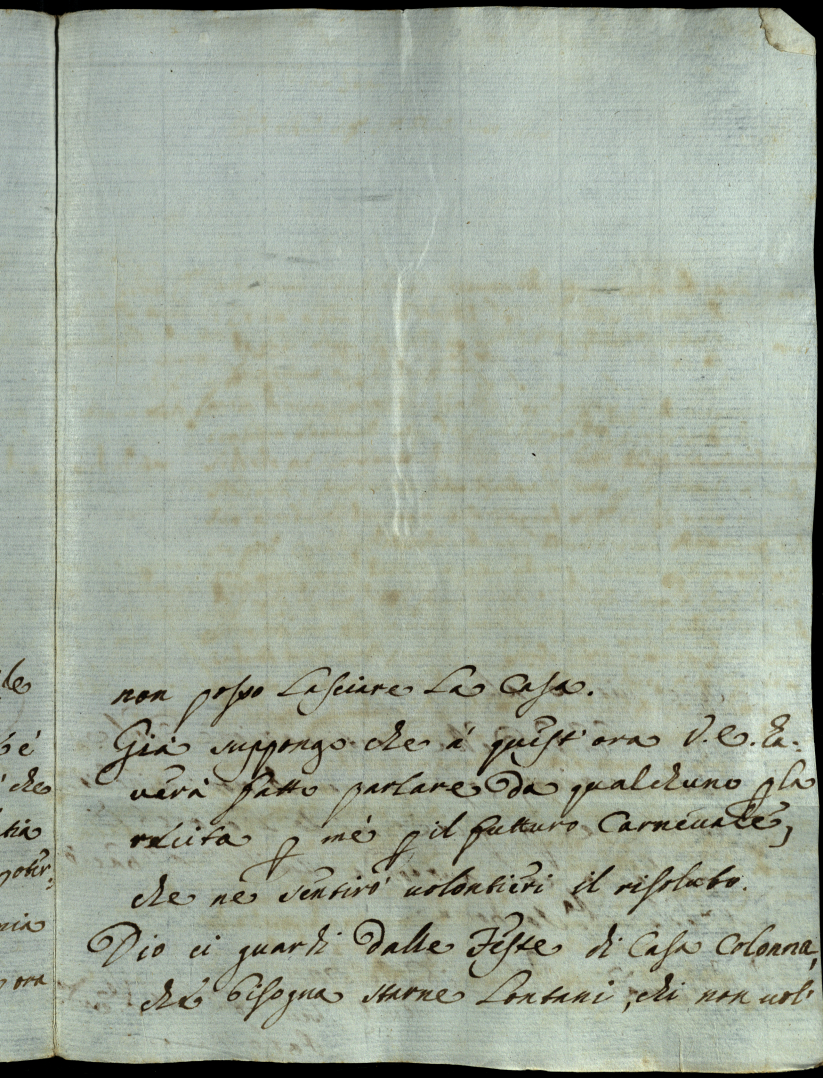 de
non posso Lasciare La Casa.
è
Già suppongo che à quest'ora V.E. ha:
che
verà fatto parlare da qualchuno p la
recita p mé p il futturo Carnevale,
che ne sentirò volontieri il risoluto.
Dio ci guardi dalle Feste di Casa Colonna,
ora
ché bisogna starne Lontani, chi non vol